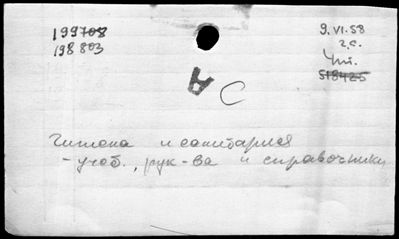 199708
198 803
9.VI.58
г.с.
Чит.
518425
A
C
Гигиена и санитария
- учеб., рук-ва и справочники